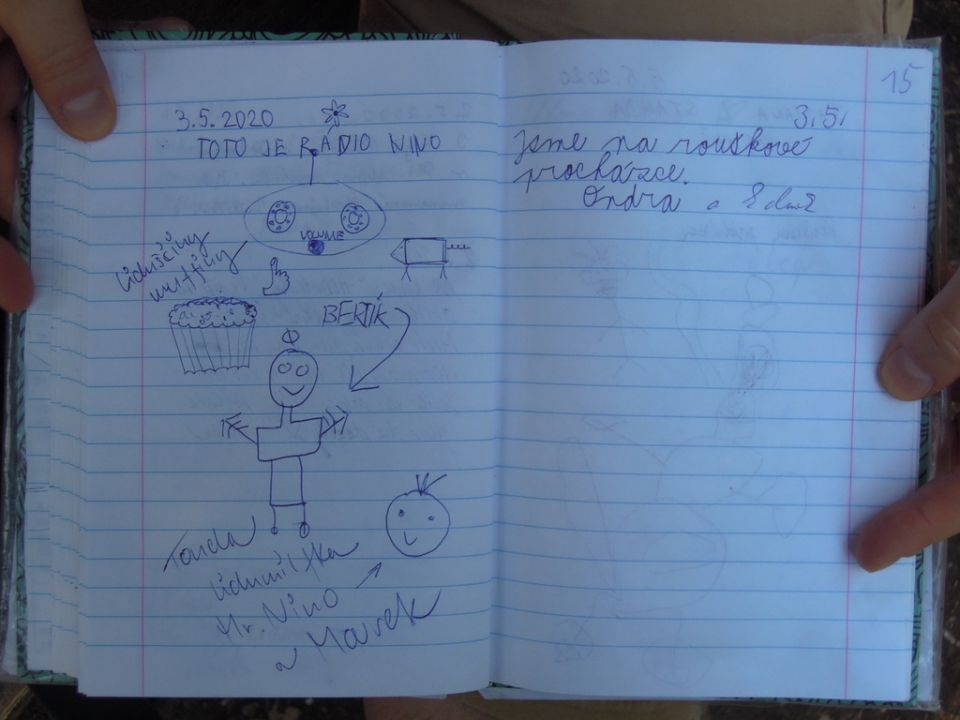 3.5.2020
TOTO JE RADIO NINO
VOLUME
Liduščiny
muffiny
BERTÍK
Tonda
Lidumilka
Mr. Nino
a Marek
15
3.5.
Jsme na rouškové
procházce.
Ondra a